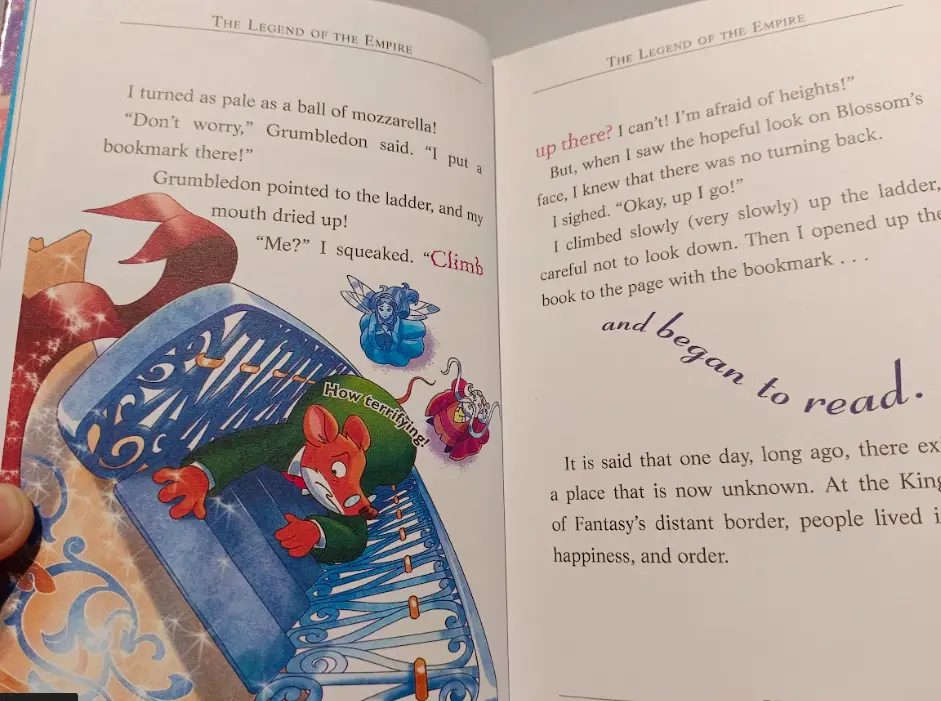 THE LEGEND OF THE EMPIRE
I turned as pale as a ball of mozzarella!
“Don’t worry,” Grumbledon said. “I put a
bookmark there!”
Grumbledon pointed to the ladder, and my
mouth dried up!
“Me?” I squeaked. “Climb
How terrifying!
THE LEGEND OF THE EMPIRE
up there? I can’t! I’m afraid of heights!”
But, when I saw the hopeful look on Blossom’s
face, I knew that there was no turning back.
I sighed. “Okay, up I go!”
I climbed slowly (very slowly) up the ladder,
careful not to look down. Then I opened up the
book to the page with the bookmark . . .
and began to read.
It is said that one day, long ago, there ex
a place that is now unknown. At the King
of Fantasy’s distant border, people lived i
happiness, and order.